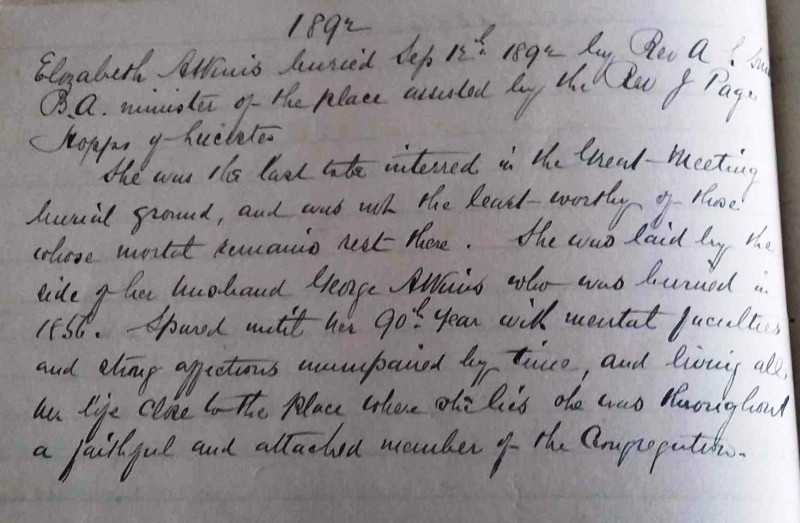 1892
Elizabeth Atkins buried Sep 12th 1892 by Rev A
B.A. minister of the place assisted by the Rev J Page
Hopps of Leicester
She was the last to be interred in the Great-Meeting
burial ground, and was not the least-worthy of those
whose mortal remains rest there. She was laid by the
side of her husband George Atkins who was buried in
1856. Spared until her 90th year with mental faculties
and strong affections unimpaired by time, and living all
her life close to the place where she lies she was throughout
a faithful and attached member of the Congregation.